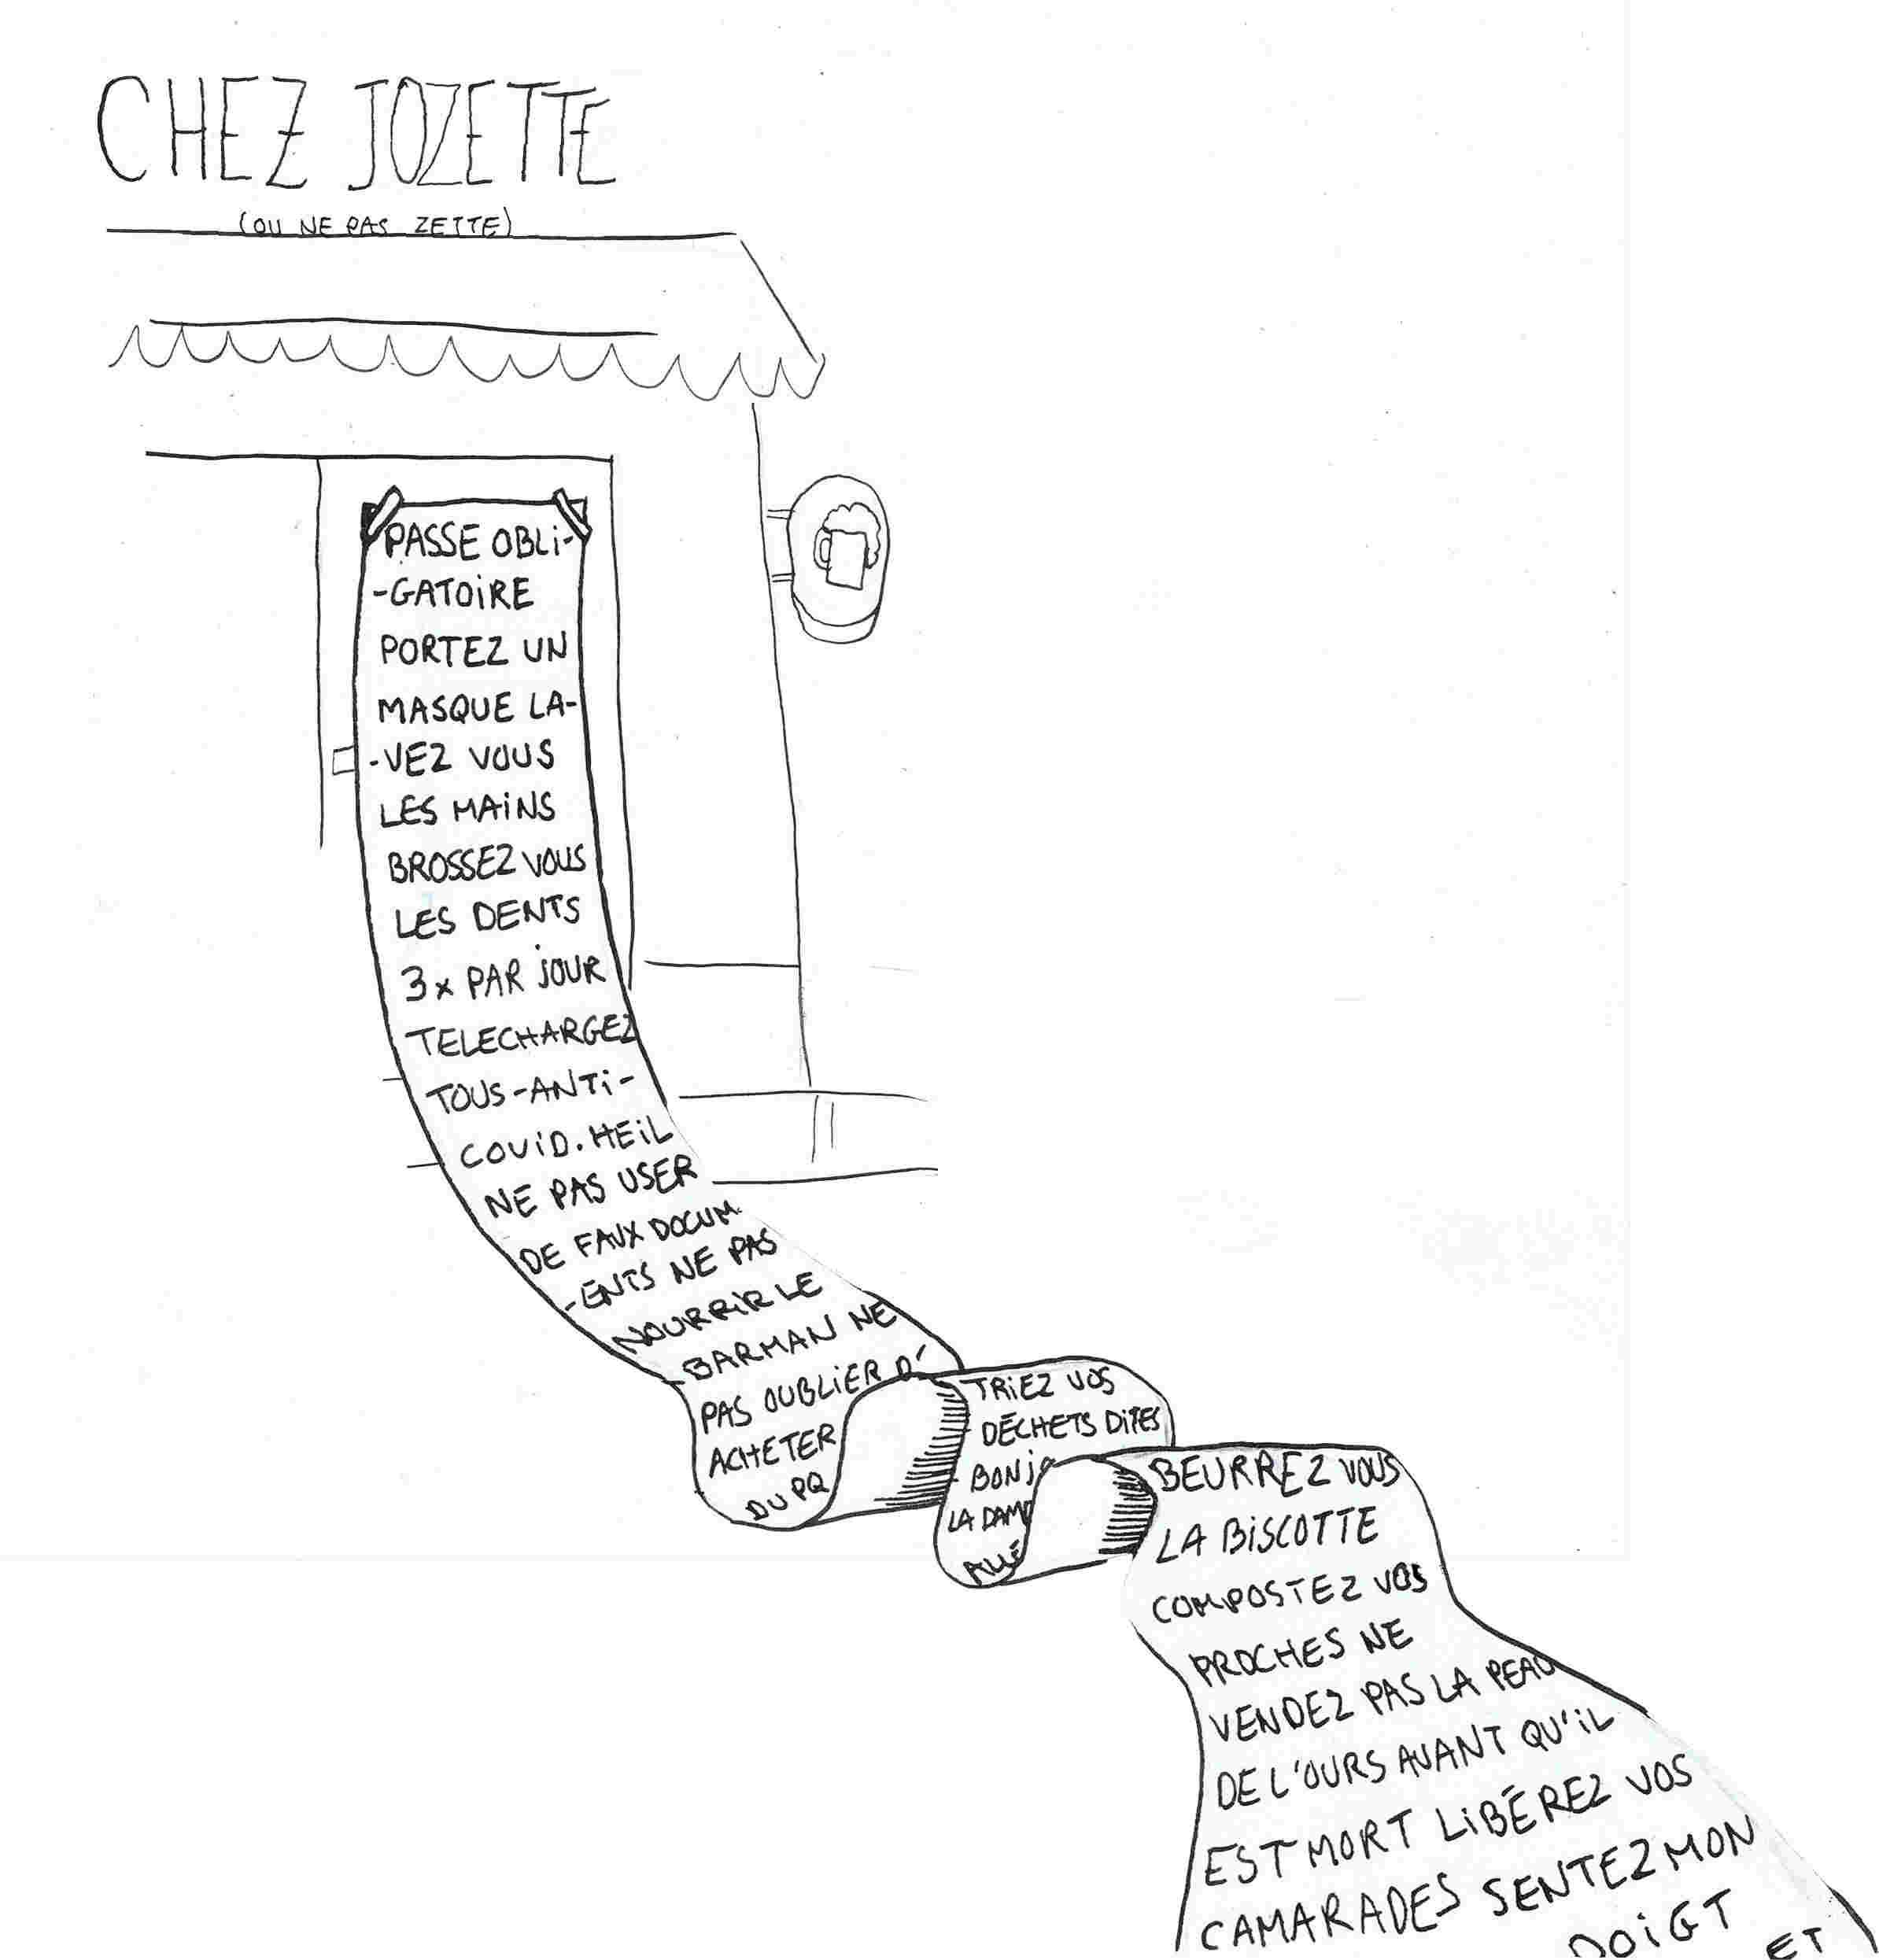 CHEZ JOZETTE
(OU NE PAS ZETTE)
PASSE OBLI-
-GATOIRE
PORTEZ UN
MASQUE LA-
-VEZ VOUS
LES MAINS
BROSSEZ VOUS
LES DENTS
3x PAR JOUR
TELECHARGEZ
TOUS-ANTI-
COVID. HEIL
NE PAS USER
DE FAUX DOCUM
-ENTS NE PAS
NOURRIR LE
BARMAN NE
PAS OUBLIER D'
ACHETER
DU PQ
TRIEZ VOS
DÉCHETS DITES
BONJO
LA DAME
ALLÉ
BEURREZ VOUS
LA BISCOTTE
COMPOSTEZ VOS
PROCHES NE
VENDEZ PAS LA PEAU
DE L'OURS AVANT QU'IL
EST MORT LIBÉREZ VOS
CAMARADES SENTEZ MON
DOIGT
ET